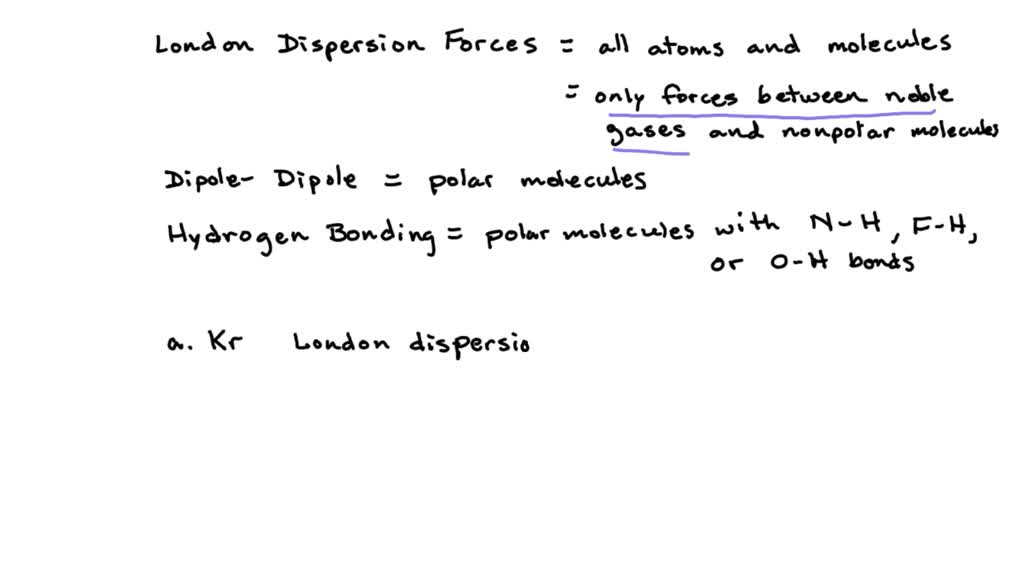 London Dispersion Forces = all atoms and molecules
= only forces between noble
gases and nonpolar molecules
Dipole- Dipole = polar molecules
Hydrogen Bonding = polar molecules with N-H, F-H,
or O-H bonds
a. Kr London dispersio